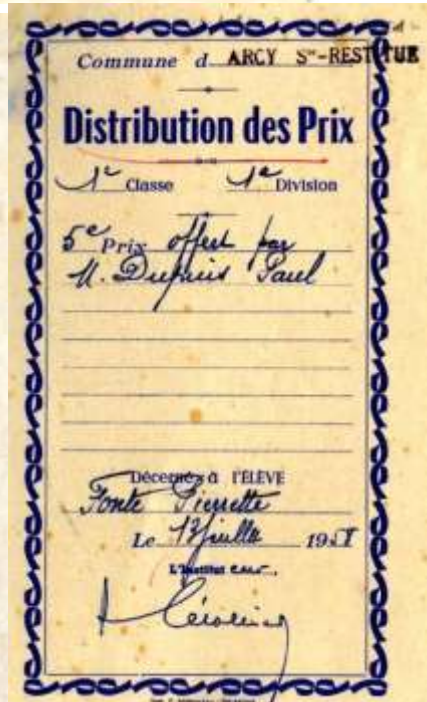 Commune d ARCY Ste-RESTITUE
Distribution des Prix
1e Classe 1e Division
5e Prix offert par
M. Dupuis Paul
Décernés à l'ÉLÈVE
Fonte Pierrette
Le 13 juillet 195
L'Institut eur,